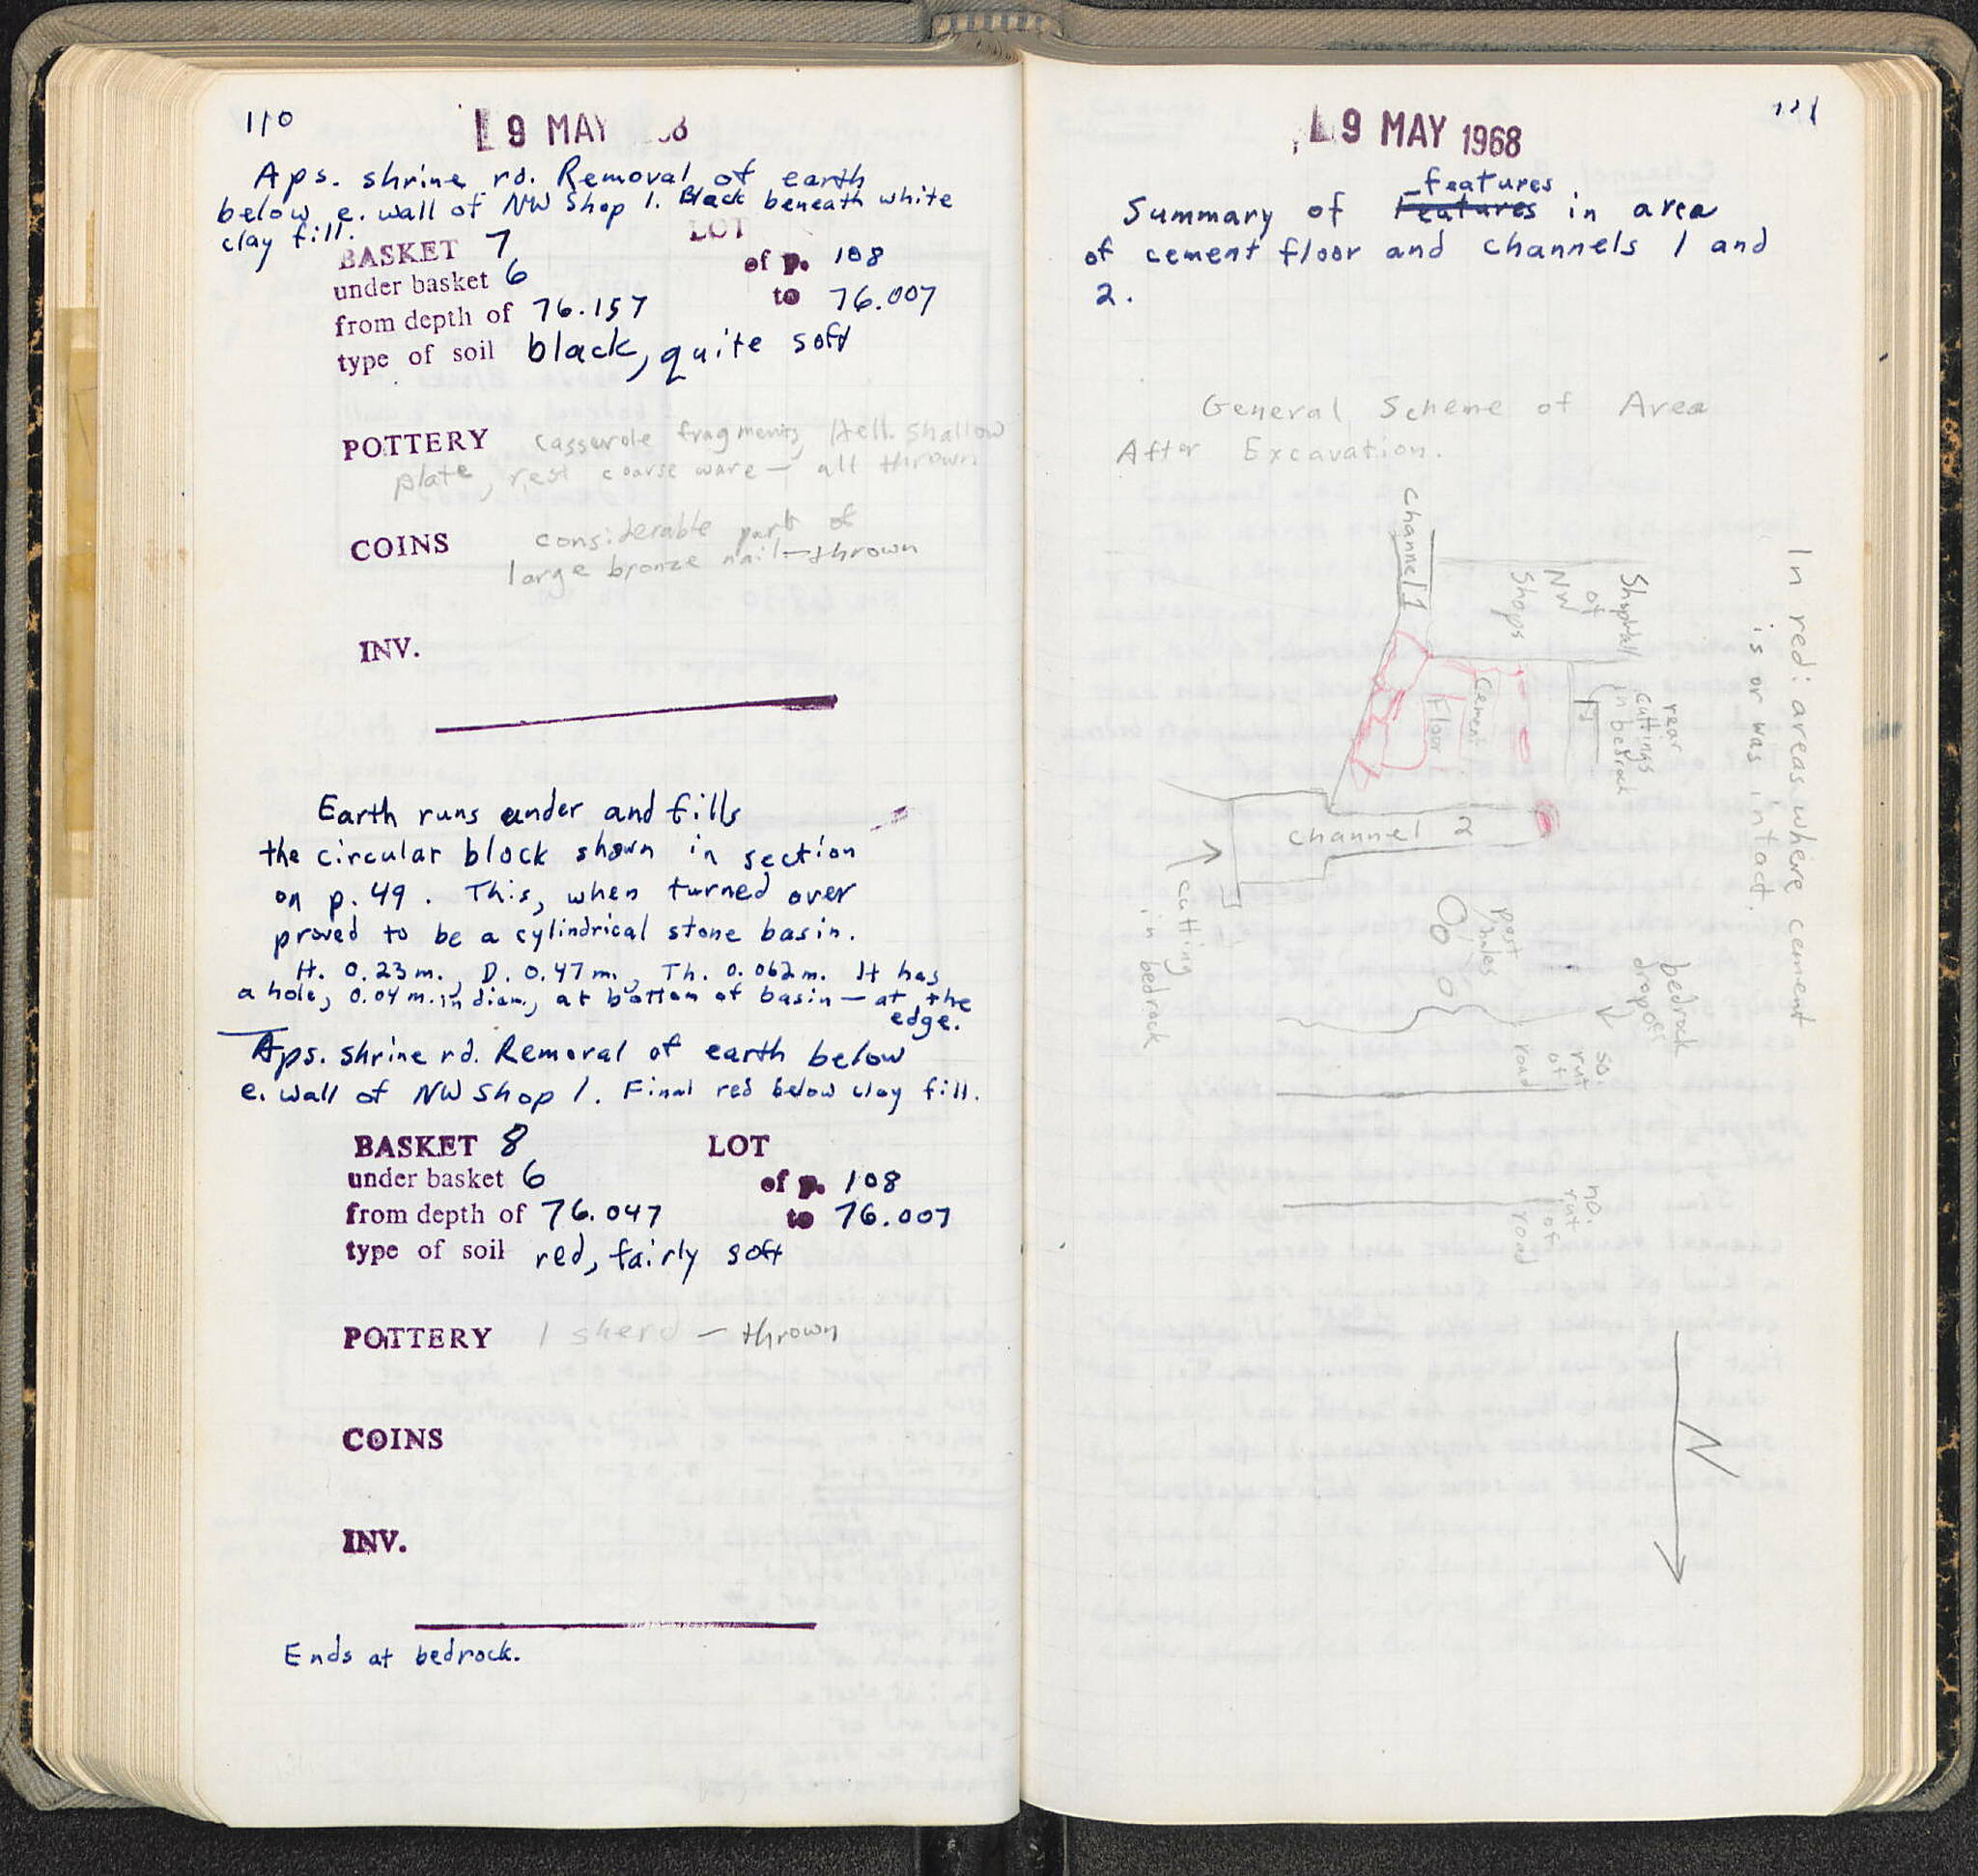 110
9 MAY
Aps. shrine rd. Removal of earth
below e. wall of NW Shop 1. Black beneath white
clay fill.
BASKET 7 LOT
under basket 6 of p. 108
from depth of 76.157 to 76.007
type of soil black, quite soft
POTTERY casserole fragments, Hell. shallow
plate, rest coarse ware — all thrown
COINS considerable part of
large bronze nail — thrown
INV.
Earth runs under and fills
the circular block shown in section
on p. 49. This, when turned over
proved to be a cylindrical stone basin.
H. 0.23 m., D. 0.47 m., Th. 0.062 m. It has
a hole, 0.04 m. in diam., at bottom of basin — at the
edge.
Aps. shrine rd. Removal of earth below
e. wall of NW Shop 1. Final red below clay fill.
BASKET 8 LOT
under basket 6 of p. 108
from depth of 76.047 to 76.007
type of soil red, fairly soft
POTTERY 1 sherd — thrown
COINS
INV.
Ends at bedrock.
111
9 MAY 1968
features
Summary of Features in area
of cement floor and channels 1 and
2.
General Scheme of Area
After Excavation.
Channel 1
Shops
NW
of
cement
Floor
rear
cuttings
in bedrock
In red: areas where cement
is or was intact.
channel 2
cutting
in bedrock
post
holes
bedrock
dropoff
so.
rut
of
road
no.
rut
of
road
N